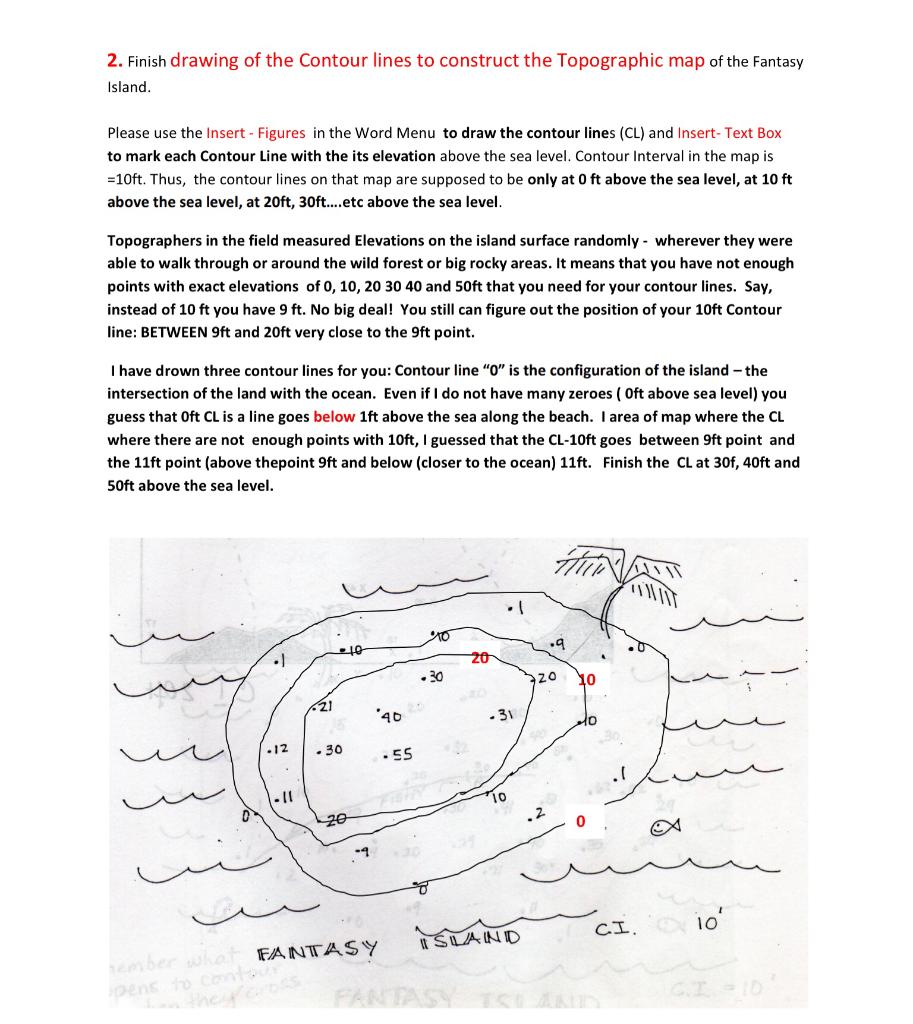 2. Finish drawing of the Contour lines to construct the Topographic map of the Fantasy
Island.
Please use the Insert - Figures in the Word Menu to draw the contour lines (CL) and Insert- Text Box
to mark each Contour Line with the its elevation above the sea level. Contour Interval in the map is
=10ft. Thus, the contour lines on that map are supposed to be only at 0 ft above the sea level, at 10 ft
above the sea level, at 20ft, 30ft....etc above the sea level.
Topographers in the field measured Elevations on the island surface randomly - wherever they were
able to walk through or around the wild forest or big rocky areas. It means that you have not enough
points with exact elevations of 0, 10, 20 30 40 and 50ft that you need for your contour lines. Say,
instead of 10 ft you have 9 ft. No big deal! You still can figure out the position of your 10ft Contour
line: BETWEEN 9ft and 20ft very close to the 9ft point.
I have drown three contour lines for you: Contour line “0” is the configuration of the island – the
intersection of the land with the ocean. Even if I do not have many zeroes ( 0ft above sea level) you
guess that 0ft CL is a line goes below 1ft above the sea along the beach. I area of map where the CL
where there are not enough points with 10ft, I guessed that the CL-10ft goes between 9ft point and
the 11ft point (above thepoint 9ft and below (closer to the ocean) 11ft. Finish the CL at 30f, 40ft and
50ft above the sea level.
.1
10
.9
.0
.10
20
.1
.30
20
10
.21
.40
.31
10
.12
.30
.55
.1
.11
10
.2
0
20
0
.9
0
FANTASY ISLAND C.I. 10'
member what
pens to contour
they cross
FANTASY ISLAND
C.I. = 10'